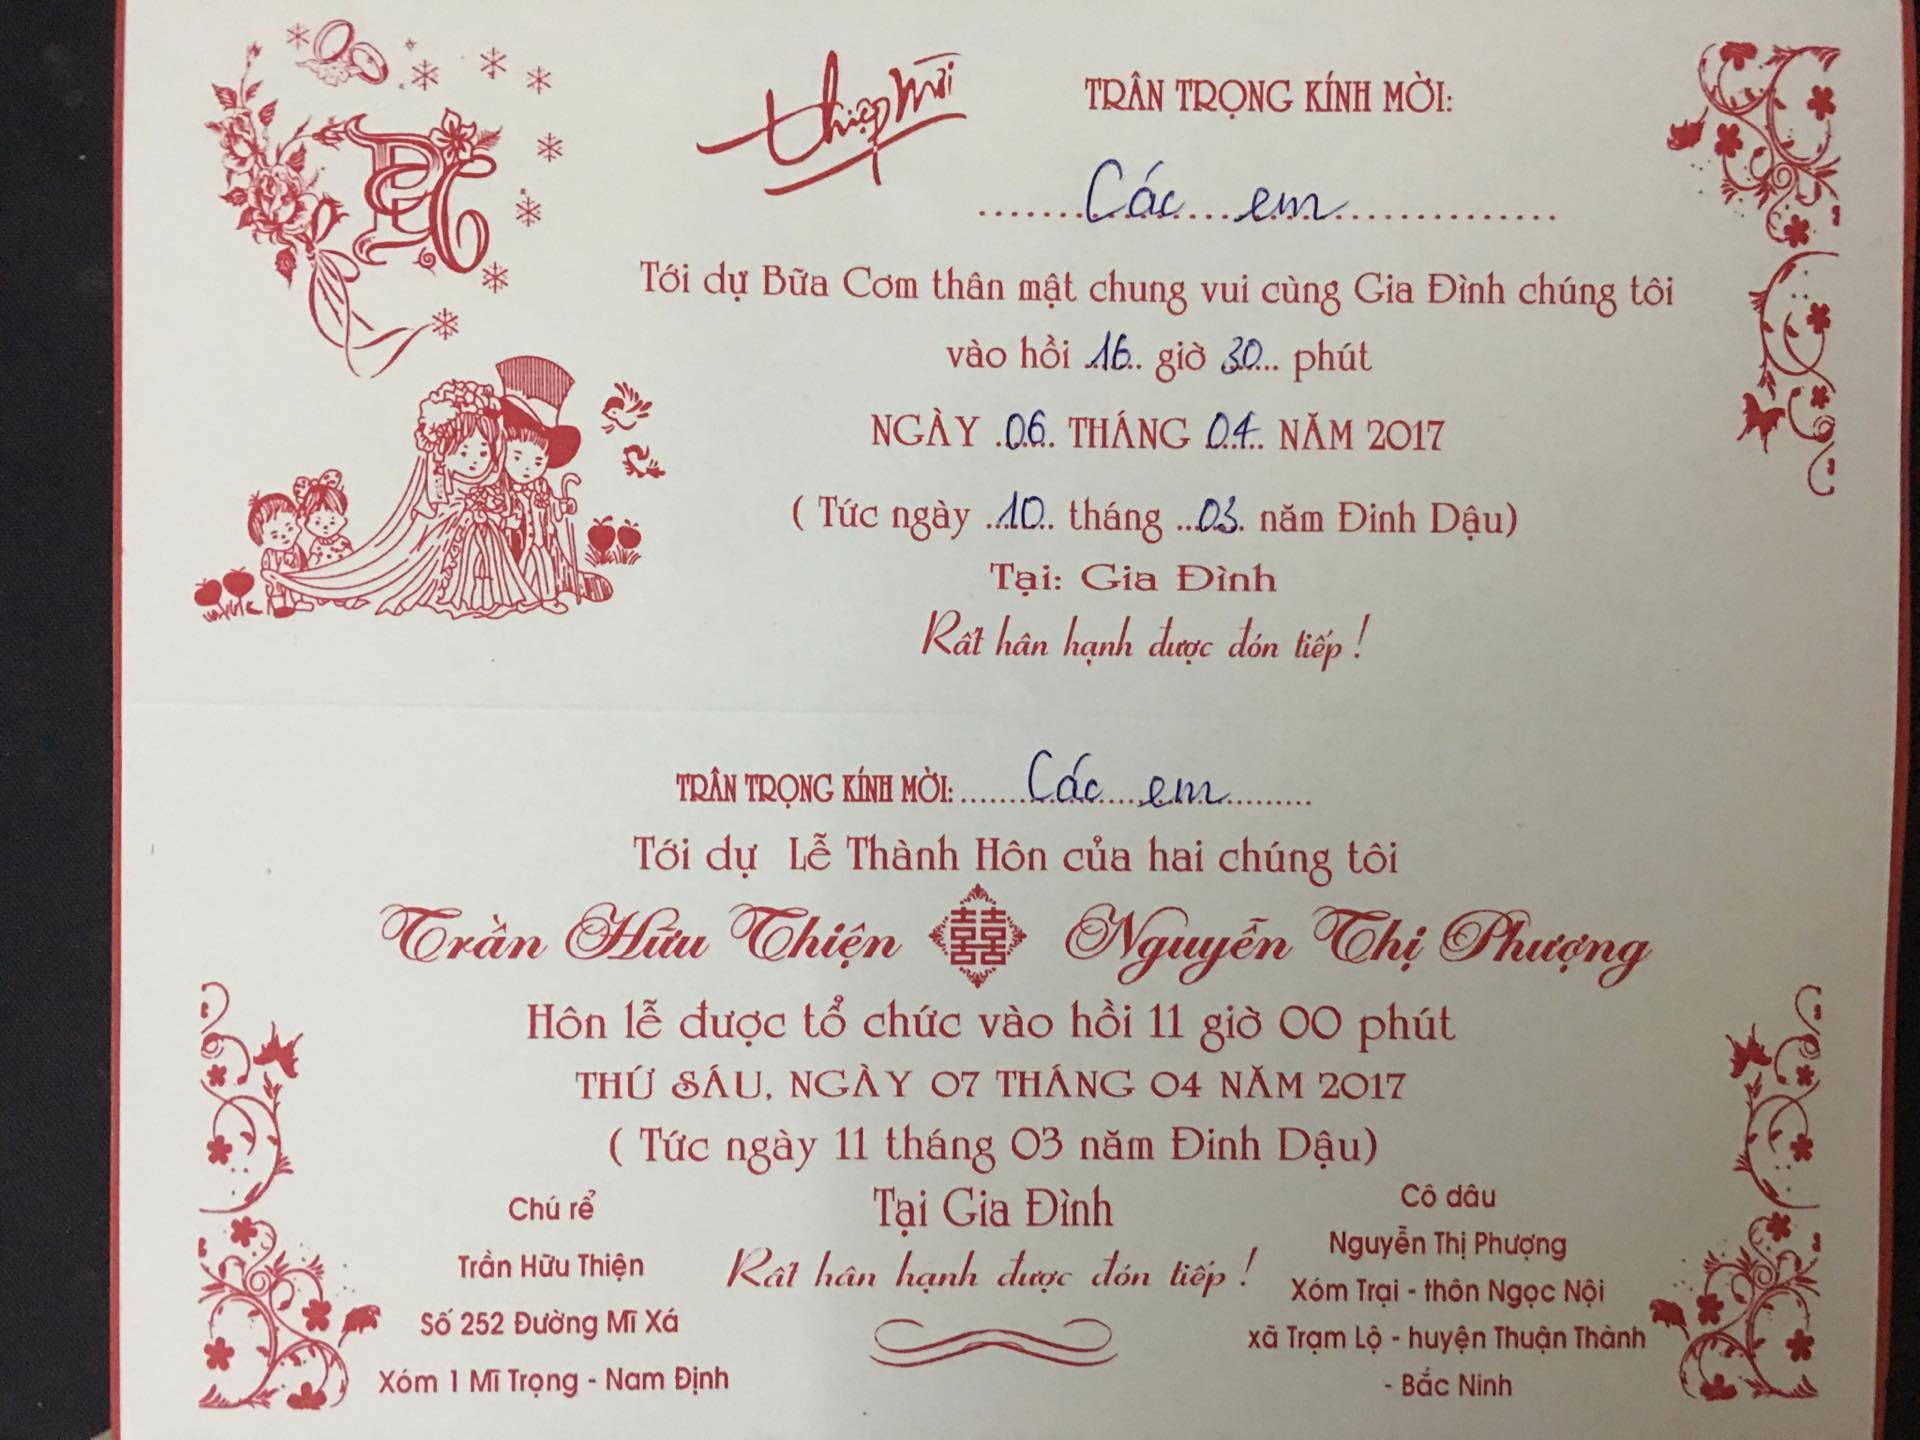 Thiệp Mời
TRÂN TRỌNG KÍNH MỜI:
Các em
Tới dự Bữa Cơm thân mật chung vui cùng Gia Đình chúng tôi
vào hồi 16 giờ 30 phút
NGÀY 06 THÁNG 04 NĂM 2017
( Tức ngày 10 tháng 03 năm Đinh Dậu)
Tại: Gia Đình
Rất hân hạnh được đón tiếp !
TRÂN TRỌNG KÍNH MỜI: Các em
Tới dự Lễ Thành Hôn của hai chúng tôi
Trần Hữu Thiện 囍 Nguyễn Thị Phượng
Hôn lễ được tổ chức vào hồi 11 giờ 00 phút
THỨ SÁU, NGÀY 07 THÁNG 04 NĂM 2017
( Tức ngày 11 tháng 03 năm Đinh Dậu)
Tại Gia Đình
Rất hân hạnh được đón tiếp !
Chú rể
Trần Hữu Thiện
Số 252 Đường Mĩ Xá
Xóm 1 Mĩ Trọng - Nam Định
Cô dâu
Nguyễn Thị Phượng
Xóm Trại - thôn Ngọc Nội
xã Trạm Lộ - huyện Thuận Thành
- Bắc Ninh